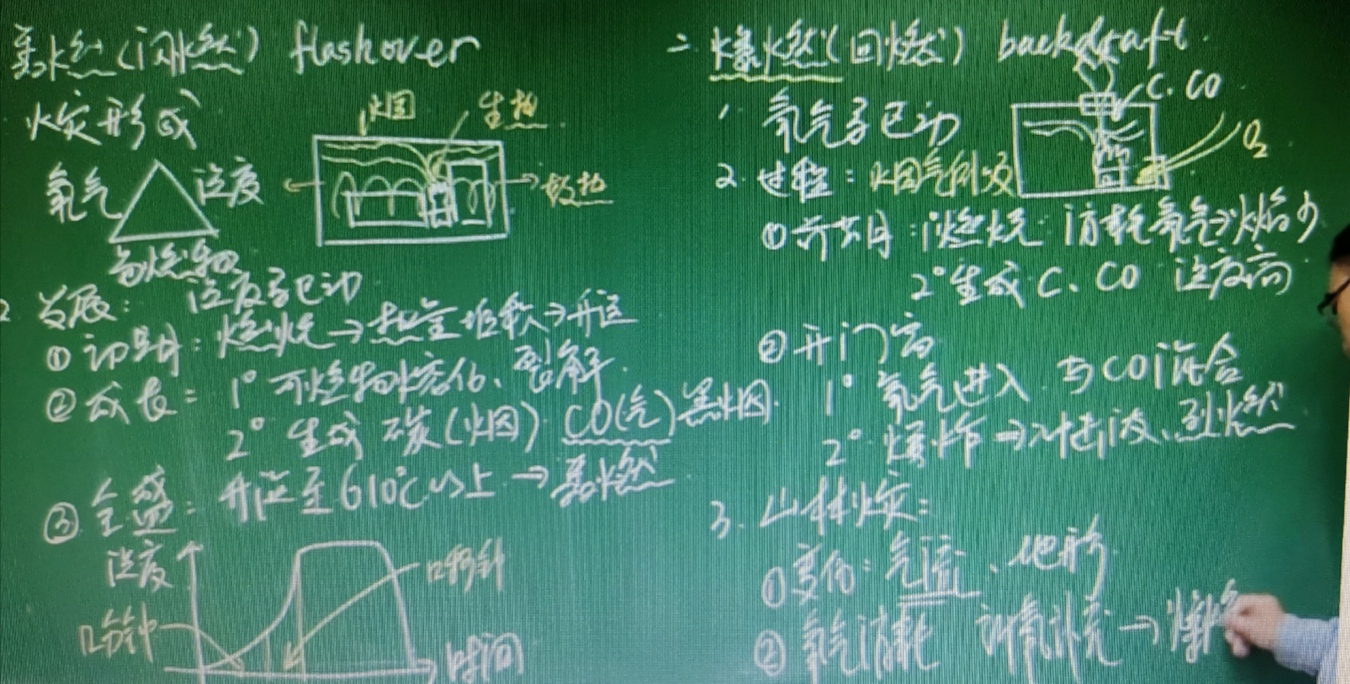 轰燃(闪燃) flashover
火灾形成
氧气 温度
可燃物
火因 生热
散热
2 发展: 温度子已动
① 初期: 燃烧→热量堆积→升温
② 成长: 1° 可燃物熔化、裂解
2° 生成 碳(火因) CO(气) 黑火因
③ 全盛: 升温至610℃以上→轰燃
温度
口分钟 口秒钟
时间
二 爆燃(回燃) backdraft
C. CO
1 氧气子已动
O₂
2. 过程: 火因气倒灰
① 开门: 1°燃烧 消耗氧气→火焰少
2°生成 C、CO 温度高
② 开门窗
1° 氧气进入 与CO混合
2° 爆炸→冲击波、烈燃
3. 山林火灾:
① 变化: 气流、地形
② 氧气消耗 新氧补充→爆燃